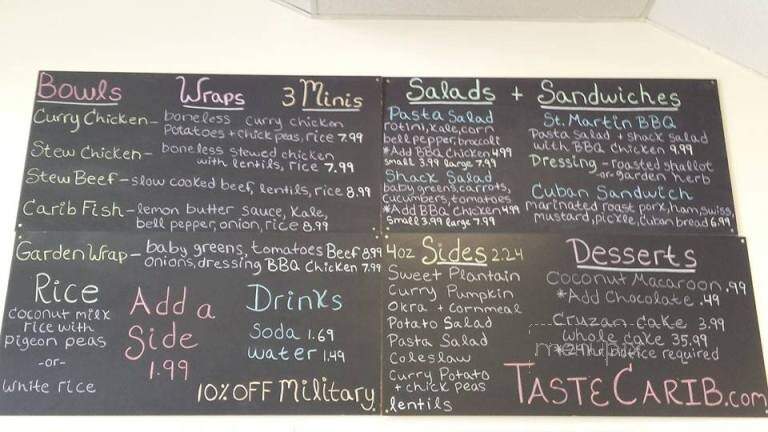 Bowls Wraps 3 Minis
Curry Chicken - boneless curry chicken
potatoes + chick peas, rice 7.99
Stew Chicken - boneless stewed chicken
with lentils, rice 7.99
Stew Beef - slow cooked beef, lentils, rice 8.99
Carib Fish - lemon butter sauce, Kale,
bell pepper, onion, rice 8.99
Garden Wrap - baby greens, tomatoes Beef 8.99
onions, dressing BBQ Chicken 7.99
Rice
coconut milk
rice with
pigeon peas
-or-
white rice
Add a
Side
1.99
Drinks
Soda 1.69
water 1.49
10% OFF Military
Salads + Sandwiches
Pasta Salad
rotini, kale, corn
bell pepper, broccoli
*Add BBQ Chicken 4.99
small 3.99 large 7.99
Shack Salad
baby greens, carrots,
cucumbers, tomatoes
*Add BBQ Chicken 4.99
small 3.99 large 7.99
St. Martin BBQ
Pasta salad + shack salad
with BBQ Chicken 9.99
Dressing - roasted shallot
-or- garden herb
Cuban Sandwich
marinated roast pork, ham, swiss,
mustard, pickle, Cuban bread 6.99
4oz Sides 2.24
Sweet Plantain
Curry Pumpkin
Okra + cornmeal
Potato Salad
Pasta Salad
Coleslaw
Curry Potato
+ chick peas
lentils
Desserts
Coconut Macaroon .99
*Add Chocolate .49
Cruzan Cake 3.99
whole cake 35.99
notice required
TASTECARIB.com